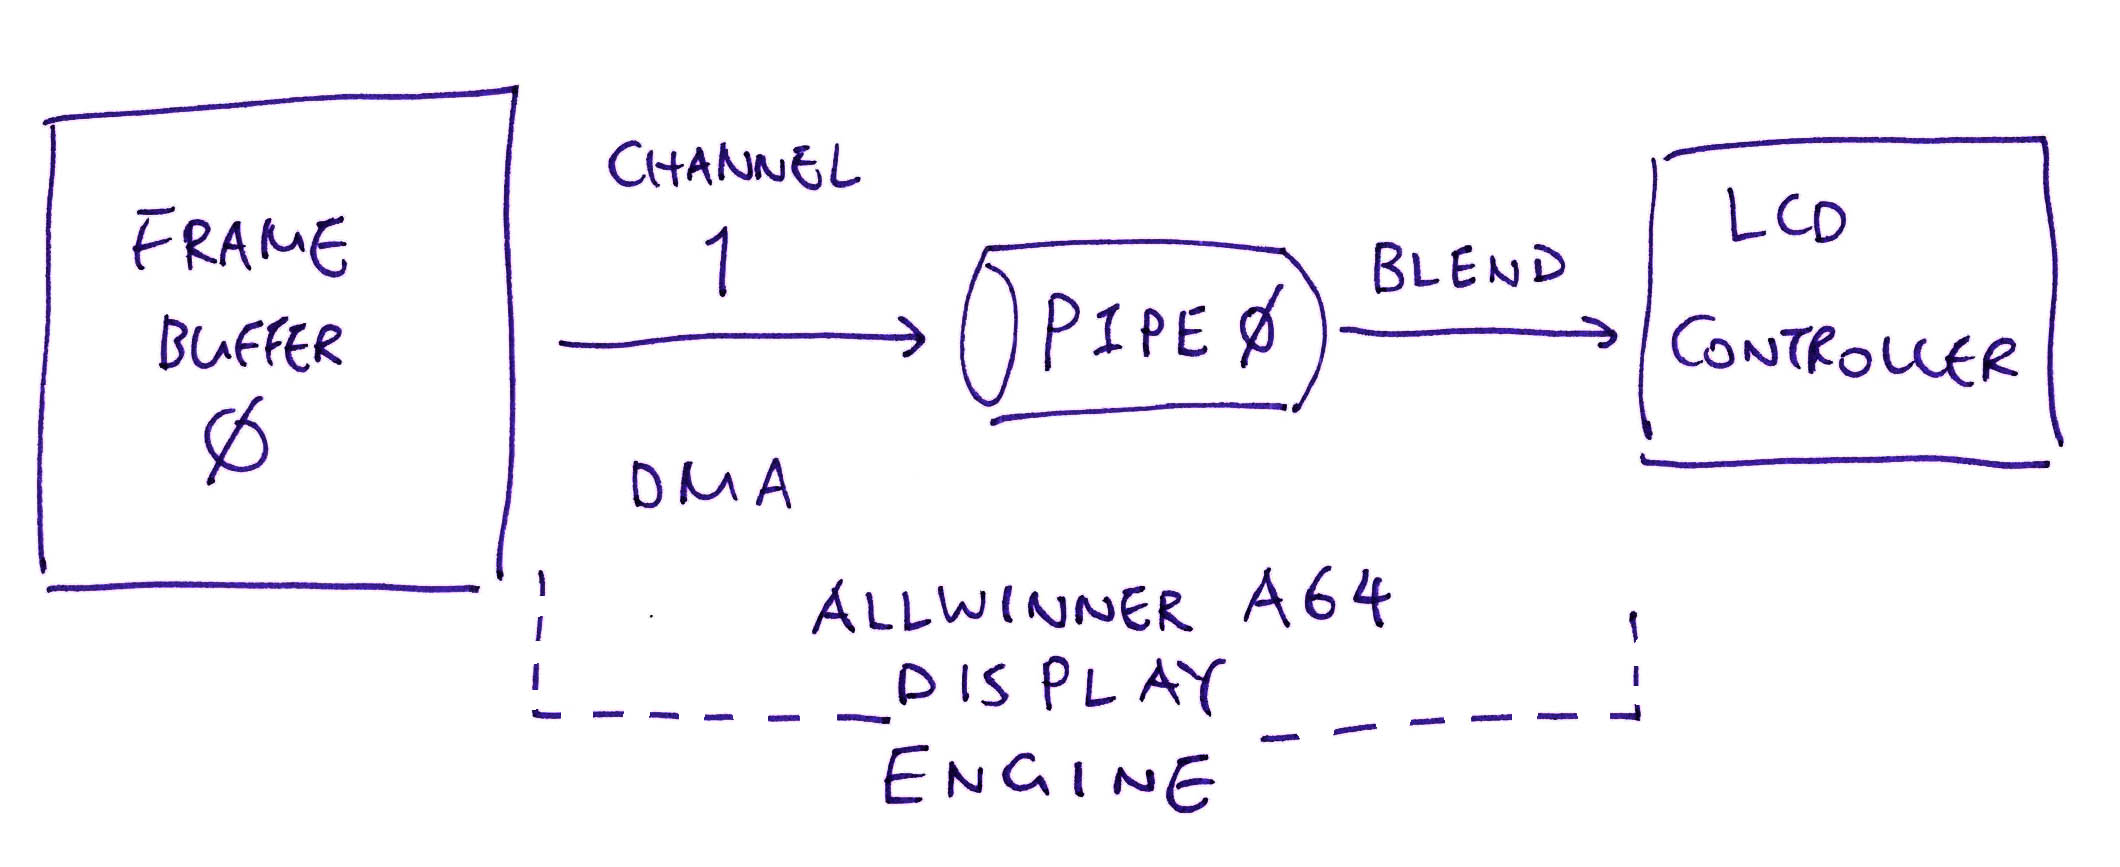 FRAME
BUFFER
Ø
CHANNEL
1
DMA
PIPE Ø
BLEND
LCD
CONTROLLER
ALLWINNER A64
DISPLAY
ENGINE